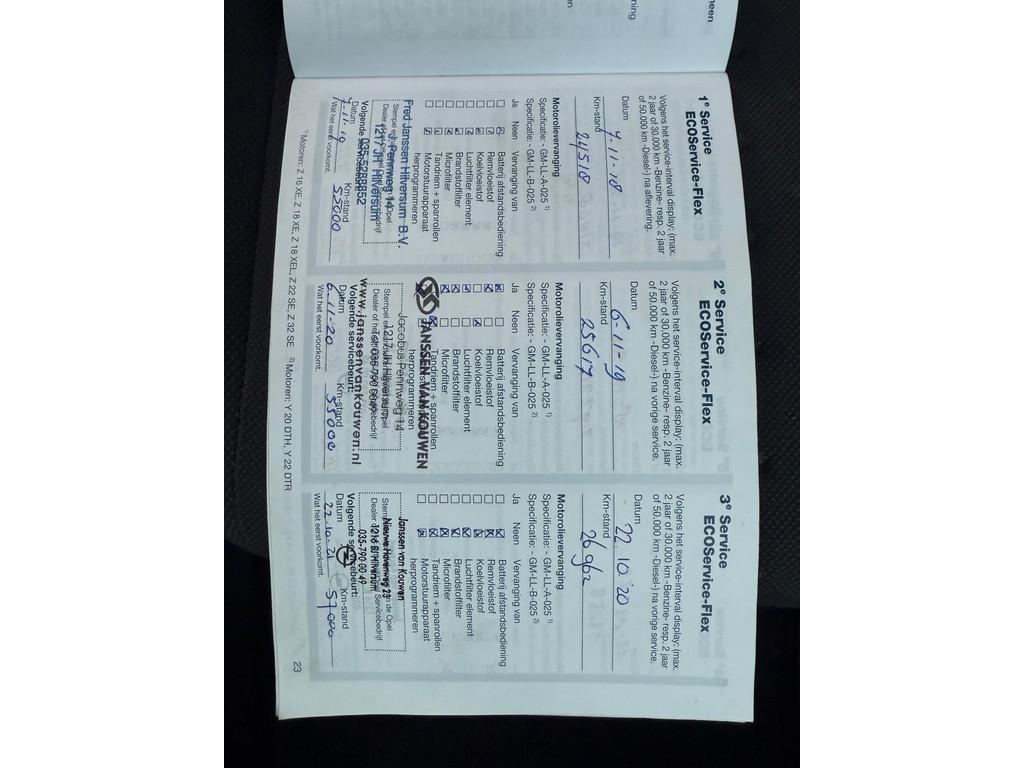 neen
ning
n
1e Service
ECOService-Flex
Volgens het service-interval display: (max.
2 jaar of 30.000 km -Benzine- resp. 2 jaar
of 50.000 km -Diesel-) na aflevering.
Datum
7-11-18
Km-stand
24518
Motorolievervanging
Specificatie: - GM-LL-A-025 1)
Specificatie: - GM-LL-B-025 2)
Ja Neen Vervanging van
Batterij afstandsbediening
Remvloeistof
Koelvloeistof
Luchtfilter element
Brandstoffilter
Microfilter
Tandriem + spanrollen
Motorstuurapparaat
herprogrammeren
Fred Janssen Hilversum B.V.
J. Pennweg 14
1217 JH Hilversum
035-5288852
Volgende servicebeurt:
Datum Km-stand
7-11-19 55000
Wat het eerst voorkomt.
2e Service
ECOService-Flex
Volgens het service-interval display: (max.
2 jaar of 30.000 km -Benzine- resp. 2 jaar
of 50.000 km -Diesel-) na vorige service.
Datum
6-11-19
Km-stand
25617
Motorolievervanging
Specificatie: - GM-LL-A-025 1)
Specificatie: - GM-LL-B-025 2)
Ja Neen Vervanging van
Batterij afstandsbediening
Remvloeistof
Koelvloeistof
Luchtfilter element
Brandstoffilter
Microfilter
Tandriem + spanrollen
herprogrammeren
JANSSEN VAN KOUWEN
Jacobus Pennweg 14
www.janssenvankouwen.nl
Volgende servicebeurt:
Datum Km-stand
6-11-20 55000
Wat het eerst voorkomt.
3e Service
ECOService-Flex
Volgens het service-interval display: (max.
2 jaar of 30.000 km -Benzine- resp. 2 jaar
of 50.000 km -Diesel-) na vorige service.
Datum
22 10 '20
Km-stand
26962
Motorolievervanging
Specificatie: - GM-LL-A-025 1)
Specificatie: - GM-LL-B-025 2)
Ja Neen Vervanging van
Batterij afstandsbediening
Remvloeistof
Koelvloeistof
Luchtfilter element
Brandstoffilter
Microfilter
Tandriem + spanrollen
Motorstuurapparaat
herprogrammeren
Janssen van Kouwen
Nieuwe Havenweg 22
Hilversum
035-790 00 49
Volgende servicebeurt:
Datum Km-stand
22-10-21 57000
Wat het eerst voorkomt.
1) Motoren: Z 16 XE, Z 18 XE, Z 18 XEL, Z 22 SE, Z 32 SE 2) Motoren: Y 20 DTH, Y 22 DTR
23